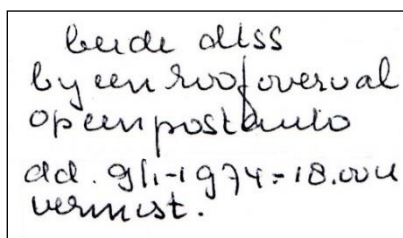 beide dtss
by een roofoverval
op een postauto
dd. 9/1-1974 = 18.00u
vermist.